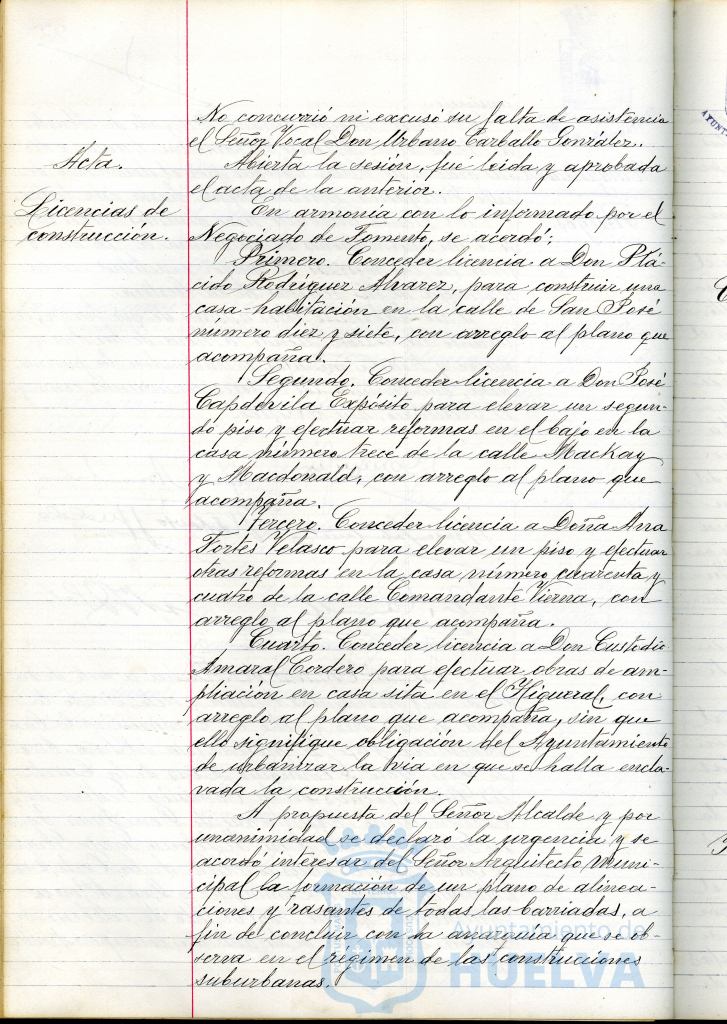 No concurrió ni excusó su falta de asistencia
el Señor Vocal Don Urbano Carballo González.
Acta.
Abierta la sesión, fué leida y aprobada
el acta de la anterior.
Licencias de
construcción.
En armonía con lo informado por el
Negociado de Fomento, se acordó:
Primero. Conceder licencia a Don Plá-
cido Rodríguez Alvarez, para construir una
casa-habitación en la calle de San José
número diez y siete, con arreglo al plano que
acompaña.
Segundo. Conceder licencia a Don José
Capdevila Expósito para elevar un segun-
do piso y efectuar reformas en el bajo en la
casa número trece de la calle Mackay
y Macdonald, con arreglo al plano que
acompaña.
Tercero. Conceder licencia a Doña Ana
Fortes Velasco para elevar un piso y efectuar
otras reformas en la casa número cuarenta y
cuatro de la calle Comandante Vierna, con
arreglo al plano que acompaña.
Cuarto. Conceder licencia a Don Custodio
Amaral Cordero para efectuar obras de am-
pliación en casa sita en el Higueral, con
arreglo al plano que acompaña, sin que
ello signifique obligación del Ayuntamiento
de urbanizar la via en que se halla encla-
vada la construcción.
A propuesta del Señor Alcalde y por
unanimidad se declaró la urgencia y se
acordó interesar del Señor Arquitecto Muni-
cipal la formación de un plano de alinea-
ciones y rasantes de todas las barriadas, a
fin de concluir con la anarquía que se ob-
serva en el régimen de las construcciones
suburbanas.
Ayuntamiento de
HUELVA